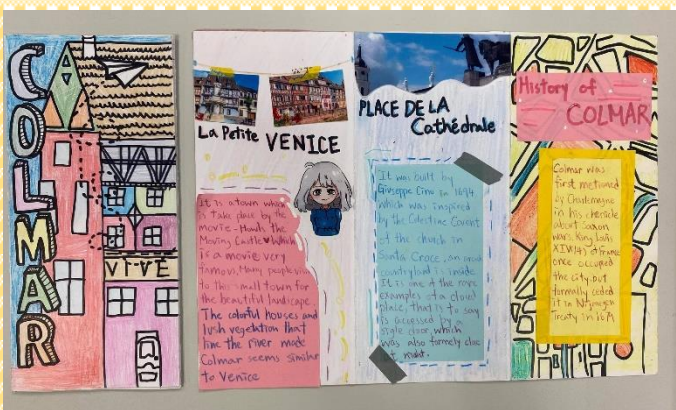 COLMAR
VIVE
La Petite VENICE
It is a town where
is take place by the
movie - Howl's the
Moving Castle ♥ Which
is a movie very
famous. Many people visit
to this small town for
the beautiful landscape.
The colorful houses and
lush vegetation that
line the river made
Colmar seems similar
to Venice
PLACE DE LA
Cathédrale
It was built by
Giuseppe Cino in 1694
which was inspired
by the Celestine Convent
of the church in
Santa Croce, an
countryland is inside
It is one of the rare
examples of a closed
place, that is to say
is accessed by a
single door, which
was also formerly close
at night.
History of
COLMAR
Colmar was
first metioned
by Charlemagne
in his chronicle
about Saxon
wars. King Louis
XIV of France
once occupied
the city, but
formally ceded
it in Nijmegen
Treaty in 1679